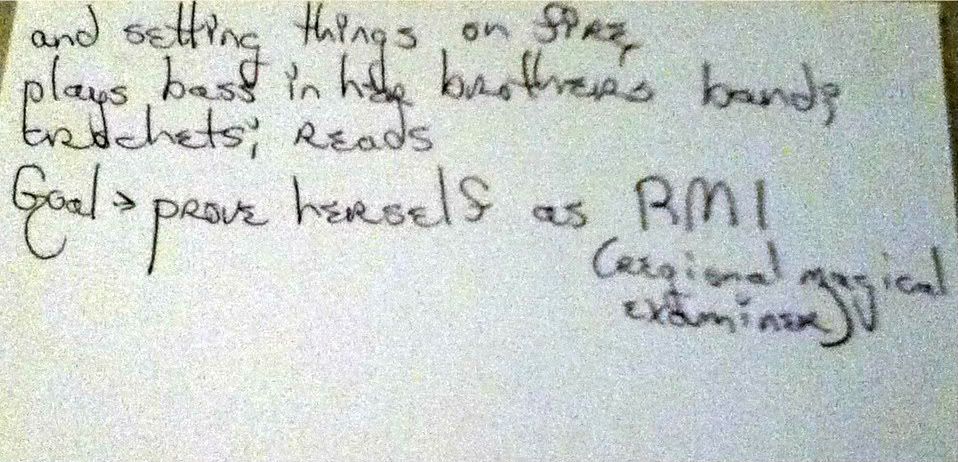 and setting things on fire,
plays bass in her brothers band;
crochets; reads
Goal → prove herself as RMI
(regional magical
examiner)